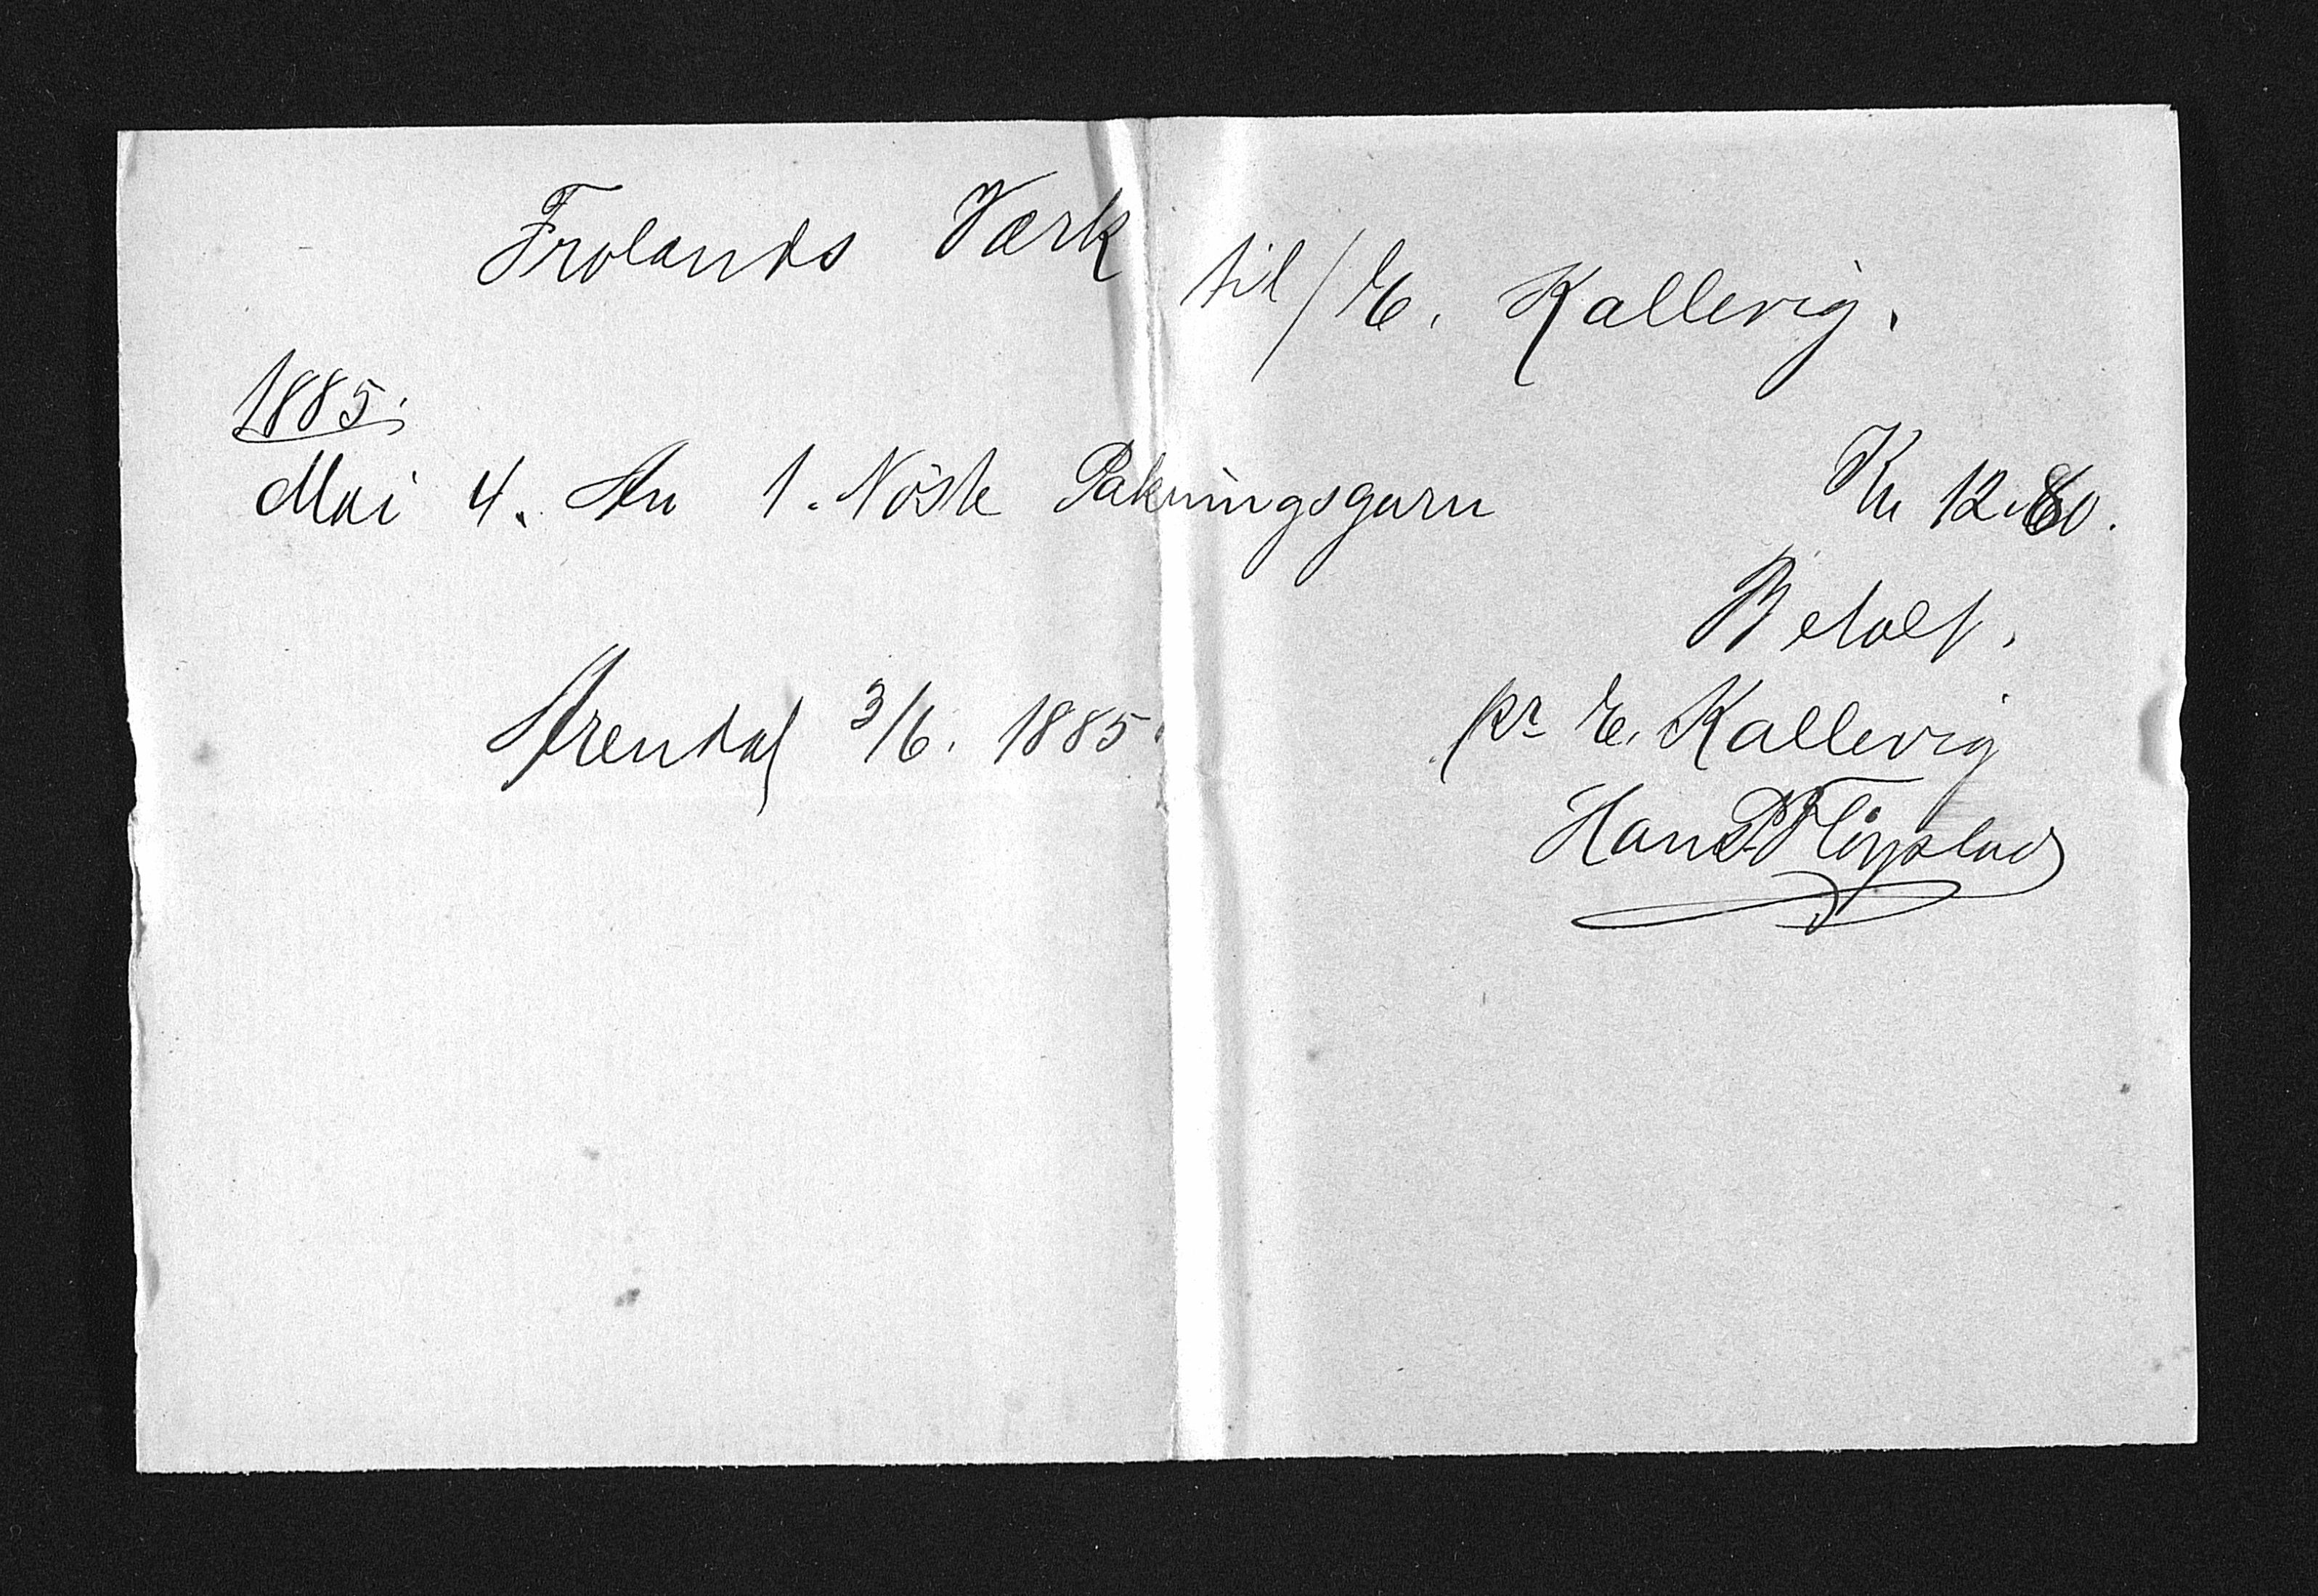 Frolands Værk til / E. Kallevig.
1885.
Mai 4. An 1. Nöste Pakningsgarn Kr 12.80.
Betalt.
Arendal 3/6. 1885. pr E. Kallevig
Hans Fløystad